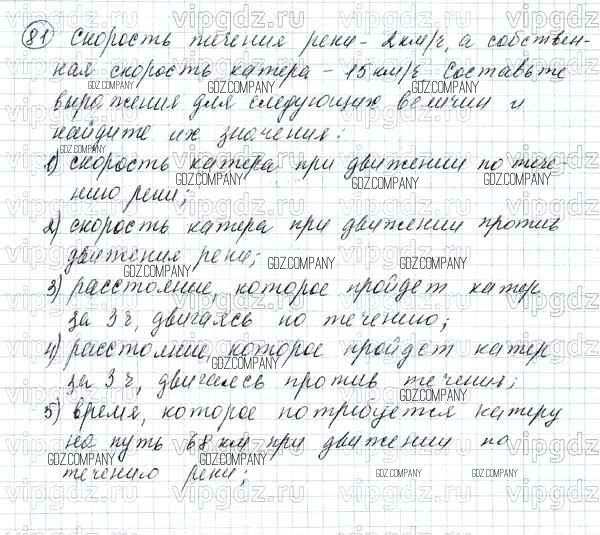 81 Скорость течения реки - 2 км/ч, а собствен-
ная скорость катера - 15 км/ч. Составьте
выражения для следующих величин и
найдите их значения:
1) скорость катера при движении по тече-
нию реки;
2) скорость катера при движении против
движения реки;
3) расстояние, которое пройдет катер
за 3 ч, двигаясь по течению;
4) расстояние, которое пройдет катер
за 3 ч, двигаясь против течения;
5) время, которое потребуется катеру
на путь 68 км при движении по
течению реки;